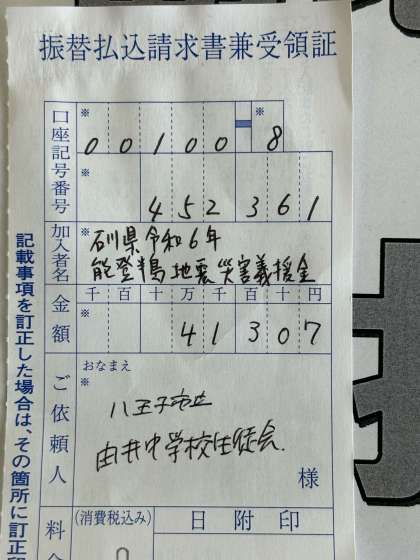 振替払込請求書兼受領証
口座記号番号
※ ※
00100 8
※
452361
加入者名
石川県令和6年
能登半島地震災害義援金
金額
千百十万千百十円
※
41307
ご依頼人
おなまえ
※
八王子市立
由井中学校生徒会
様
料金
(消費税込み)
日附印
記載事項を訂正した場合は、その箇所に訂正印